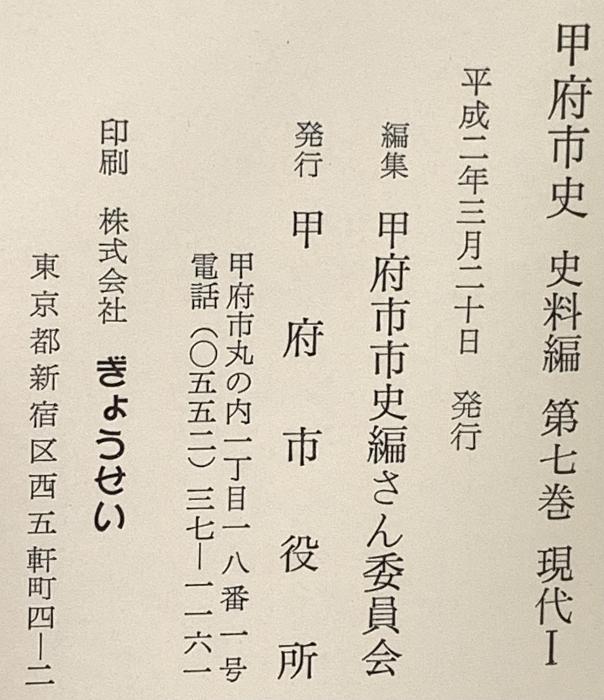 甲府市史 史料編 第七巻 現代Ⅰ
平成二年三月二十日 発行
編集 甲府市市史編さん委員会
発行 甲府市役所
甲府市丸の内一丁目一八番一号
電話(〇五五二)三七―一一六一
印刷 株式会社 ぎょうせい
東京都新宿区西五軒町四―二